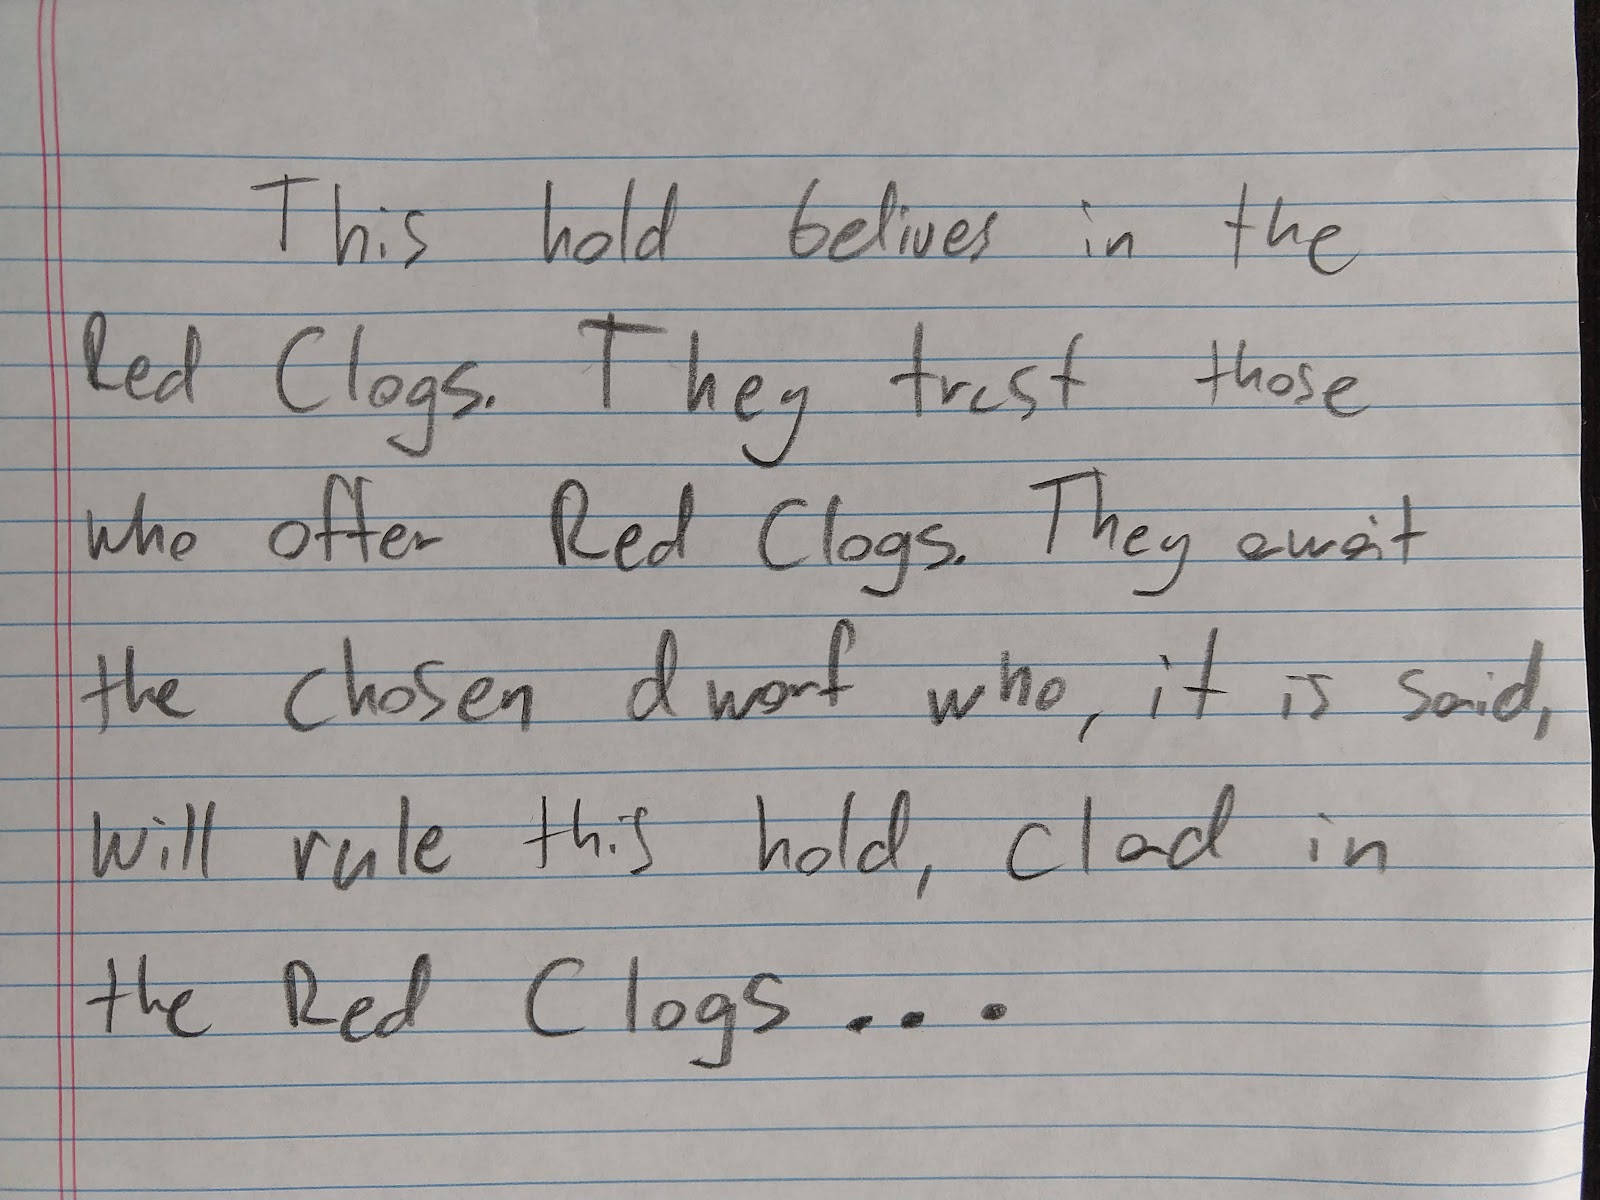 This hold belives in the
Red Clogs. They trust those
who offer Red Clogs. They await
the chosen dwarf who, it is said,
will rule this hold, clad in
the Red Clogs...